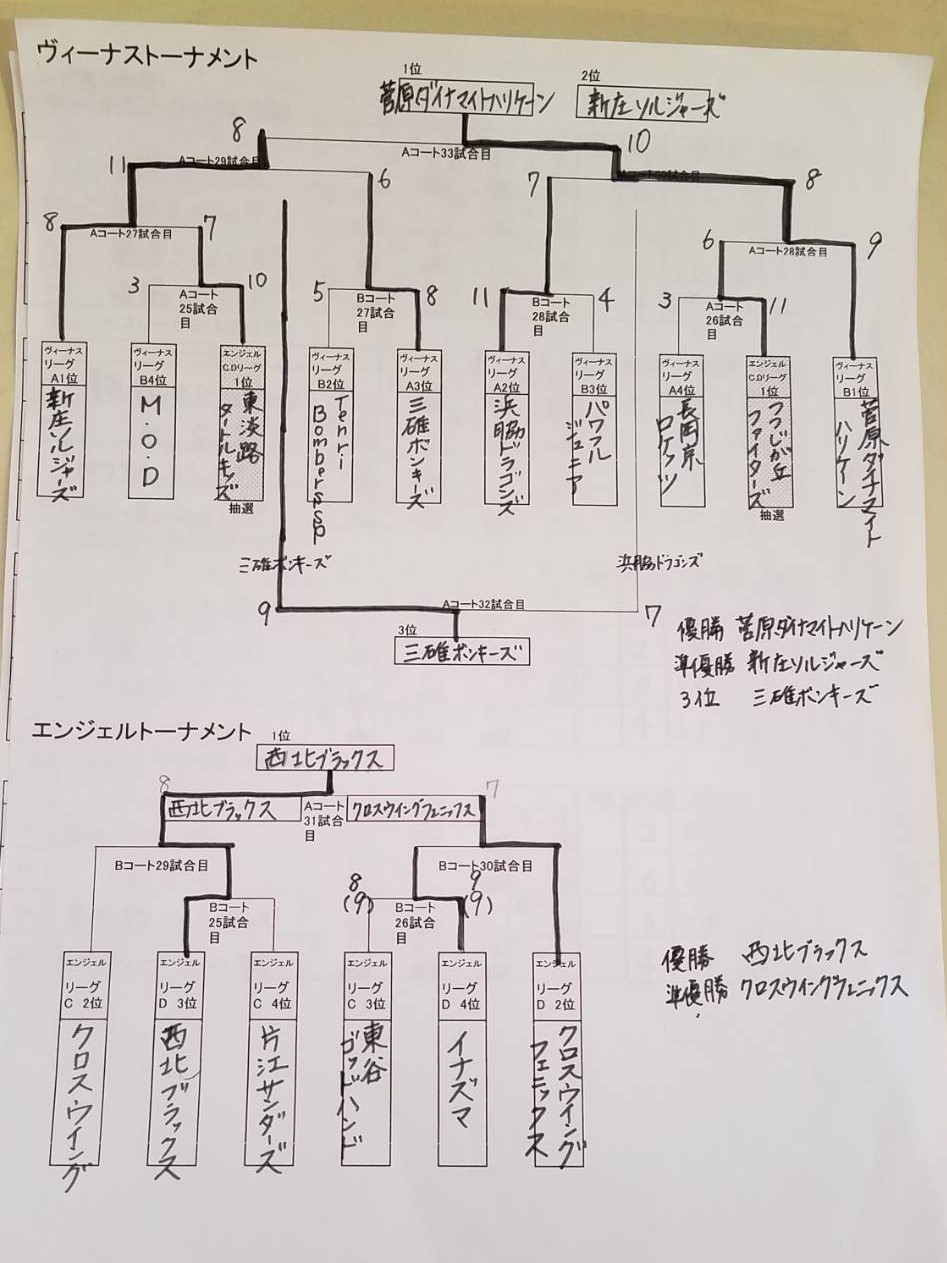 ヴィーナストーナメント
1位
菅原ダイナマイトハリケーン
2位
新庄ソルジャーズ
8
Aコート33試合目
10
11
Aコート29試合目
6
7
8
8
Aコート27試合目
7
6
Aコート28試合目
9
3
Aコート
25試合
目
10
5
Bコート
27試合
目
8
11
Bコート
28試合
目
4
3
Aコート
26試合
目
11
ヴィーナス
リーグ
A1位
新庄ソルジャーズ
ヴィーナス
リーグ
B4位
M.O.D
エンジェル
C.Dリーグ
1位
東淡路
タートルキッズ
抽選
ヴィーナス
リーグ
B2位
Tenri
BombersSP
ヴィーナス
リーグ
A3位
三碓ボンキーズ
ヴィーナス
リーグ
A2位
浜脇ドラゴンズ
ヴィーナス
リーグ
B3位
パワフル
ジュニア
ヴィーナス
リーグ
A4位
長岡京
ロケッツ
エンジェル
C.Dリーグ
1位
つつじが丘
ファイターズ
抽選
ヴィーナス
リーグ
B1位
菅原ダイナマイト
ハリケーン
三碓ボンキーズ
浜脇ドラゴンズ
9
Aコート32試合目
7
3位
三碓ボンキーズ
優勝 菅原ダイナマイトハリケーン
準優勝 新庄ソルジャーズ
3位 三碓ボンキーズ
エンジェルトーナメント
1位
西北ブラックス
8
西北ブラックス
Aコート
31試合
目
クロスウイングフェニックス
7
Bコート29試合目
Bコート30試合目
Bコート
25試合
目
8
(9)
Bコート
26試合
目
9
(9)
エンジェル
リーグ
C 2位
クロスウイング
エンジェル
リーグ
D 3位
西北ブラックス
エンジェル
リーグ
C 4位
片江サンダーズ
エンジェル
リーグ
C 3位
東谷
ゴッドハンド
エンジェル
リーグ
D 4位
イナズマ
エンジェル
リーグ
D 2位
クロスウイング
フェニックス
優勝 西北ブラックス
準優勝 クロスウイングフェニックス